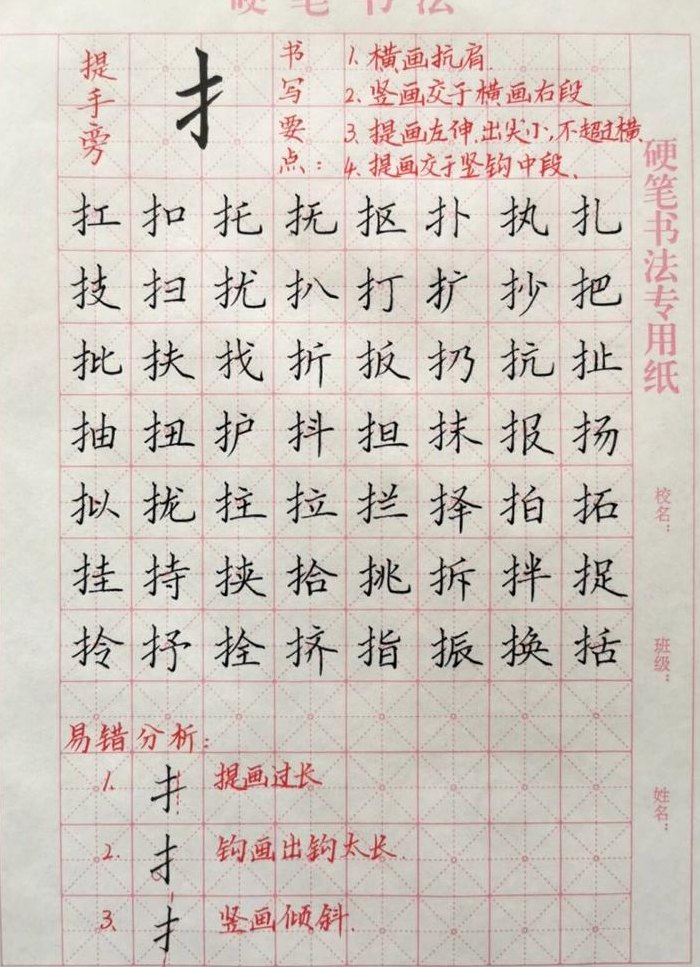 硬笔书法
提手旁
扌
书写要点：
1. 横画抗肩.
2. 竖画交于横画右段
3. 提画左伸,出尖小,不超过横.
4. 提画交于竖钩中段.
扛扣托抚抠扑执扎
技扫扰扒打扩抄把
批扶找折扳扔抗扯
抽扭护抖担抹报扬
拟拢拄拉拦择拍拓
挂持挟拾挑拆拌捉
拎抒拴挤指振换括
易错分析:
1. 扌 提画过长
2. 扌 钩画出钩太长
3. 扌 竖画倾斜.
硬笔书法专用纸
校名：
班级：
姓名：